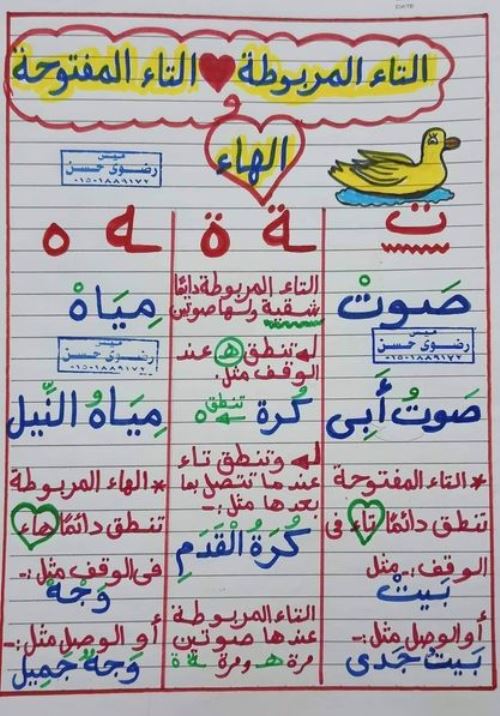 DATE
التاء المربوطة التاء المفتوحة
و
الهاء
ميس
رضوى حسن
٠١٥٠١٨٨٩١٧٢
ت
صَوتْ
ميس
رضوى حسن
٠١٥٠١٨٨٩١٧٢
صَوتُ أَبِى
* التاء المفتوحة
تنطق دائمًا تاء فى
الوقف :ـ مثل
بَيتْ
أو الوصل مثل :ـ
بَيتُ جَدى
ـة ة
التاء المربوطة دايمًا
شقية ولها صوتين
تنطق هـ عند
الوقف مثل:
كُرة تنطق ـه
وتنطق تاء
عندما تتصل بما
بعدها مثل:ـ
كُرَةُ الْقَدَمِ
التاء المربوطة
عندها صوتين
مرة هـ ومرة ـة ة
ـه ه
مِيَاهْ
ميس
رضوى حسن
٠١٥٠١٨٨٩١٧٢
مِيَاهُ النِّيل
* الهاء المربوطة
تنطق دائمًا هاء
فى الوقف مثل :ـ
وَجْهْ
أو الوصل مثل :ـ
وَجهٌ جَمِيل